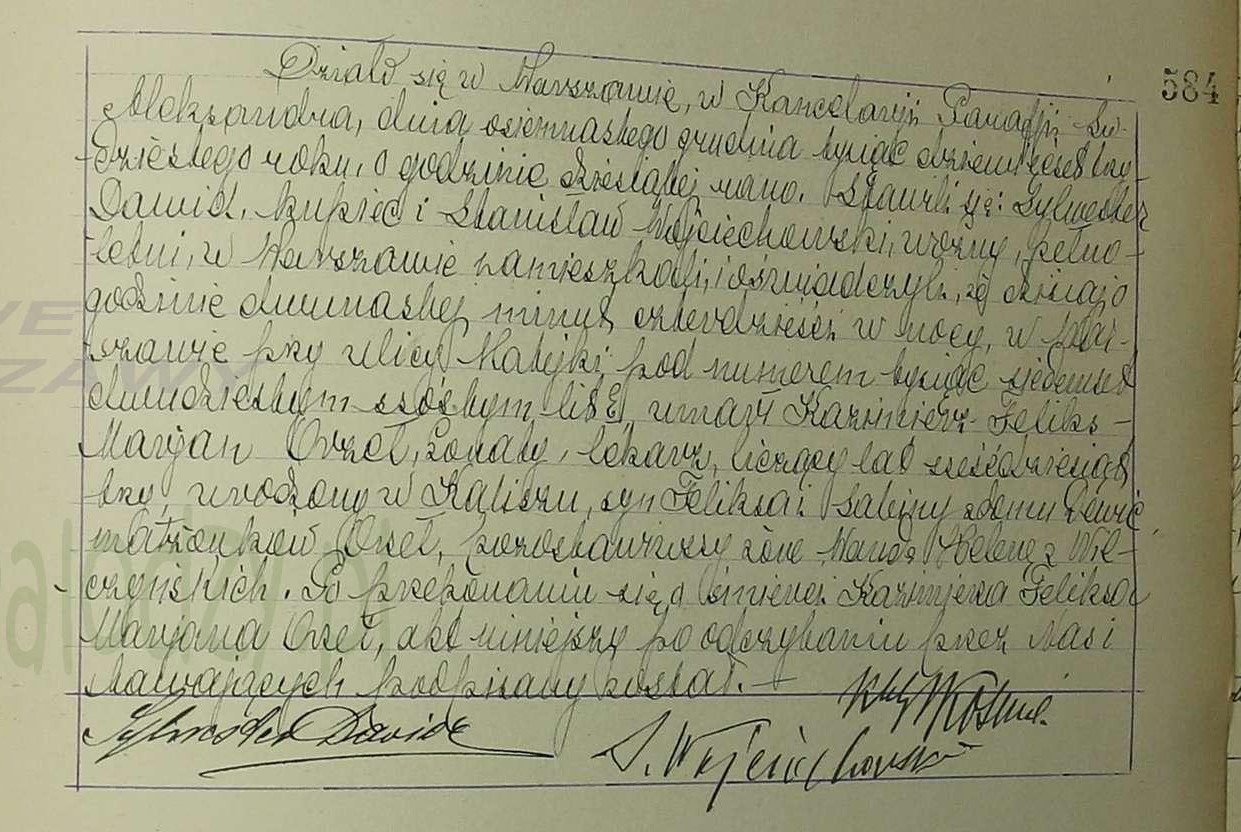 584
Działo się w Warszawie, w Kancelarji Parafji Św.
Aleksandra, dnia osiemnastego grudnia tysiąc dziewięćset trzy-
dziestego roku, o godzinie dziesiątej rano. Stawili się: Sylwester
Dawid, kupiec i Stanisław Wojciechowski, woźny, pełno-
letni, w Warszawie zamieszkali, i oświadczyli, że dzisiaj o
godzinie dwunastej minut czterdzieści w nocy, w War-
szawie przy ulicy Matejki pod numerem tysiąc siedemset
dwudziestym szóstym lit E, umarł Kazimierz-Feliks-
Marjan Orzeł, żonaty, lekarz, liczący lat sześćdziesiąt
trzy, urodzony w Kaliszu, syn Feliksa i Sabiny z domu
małżonków Orzeł, pozostawiwszy żonę Wandę Helenę z Wil-
czyńskich. Po przekonaniu się o śmierci Kazimierza Feliksa
Marjana Orzeł, akt niniejszy po odczytaniu przez Nas i
stawających podpisany został.
Sylwester Dawid
S. Wojciechowski
WE
ZAWY
alodzy.pl